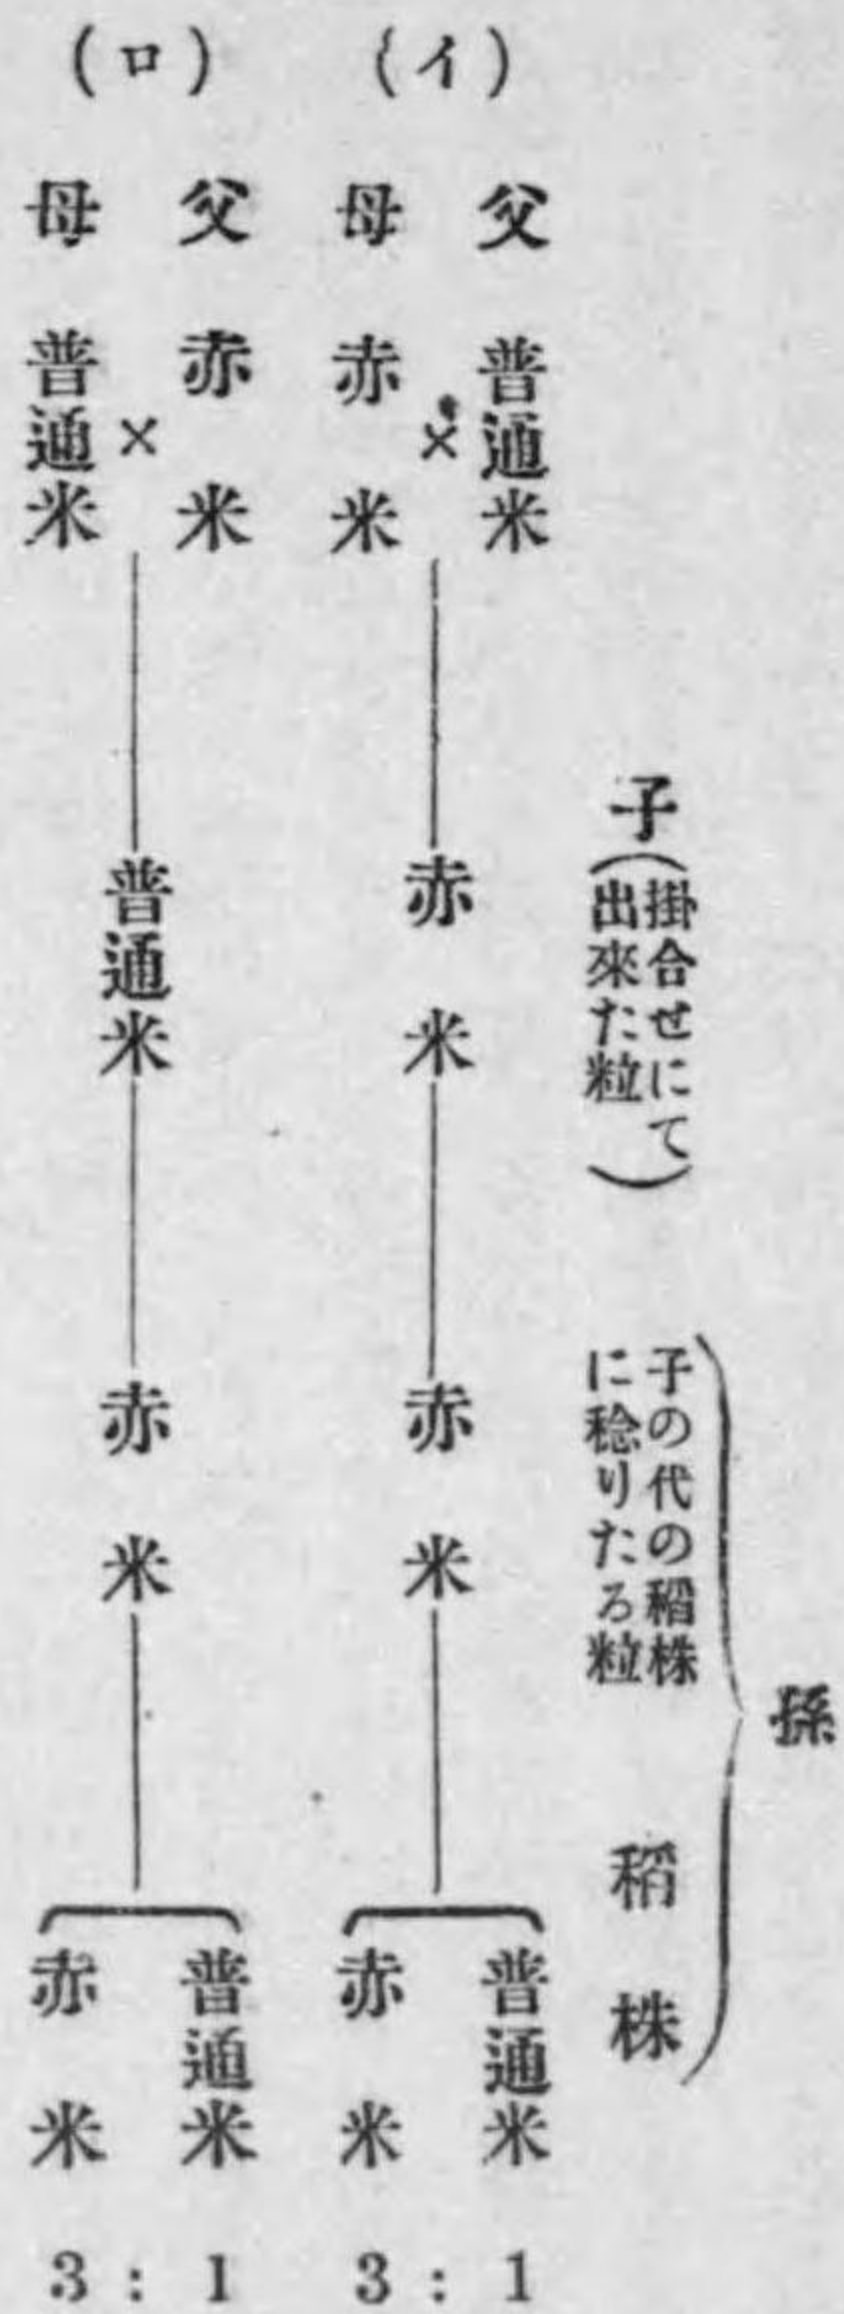 孫
子(掛合せにて
出來た粒)
子の代の稲株
に稔りたる粒
稲株
(イ)
父 普通米
×
母 赤米
赤米
赤米
普通米
赤米
3 : 1
(ロ)
父 赤米
×
母 普通米
普通米
赤米
普通米
赤米
3 : 1